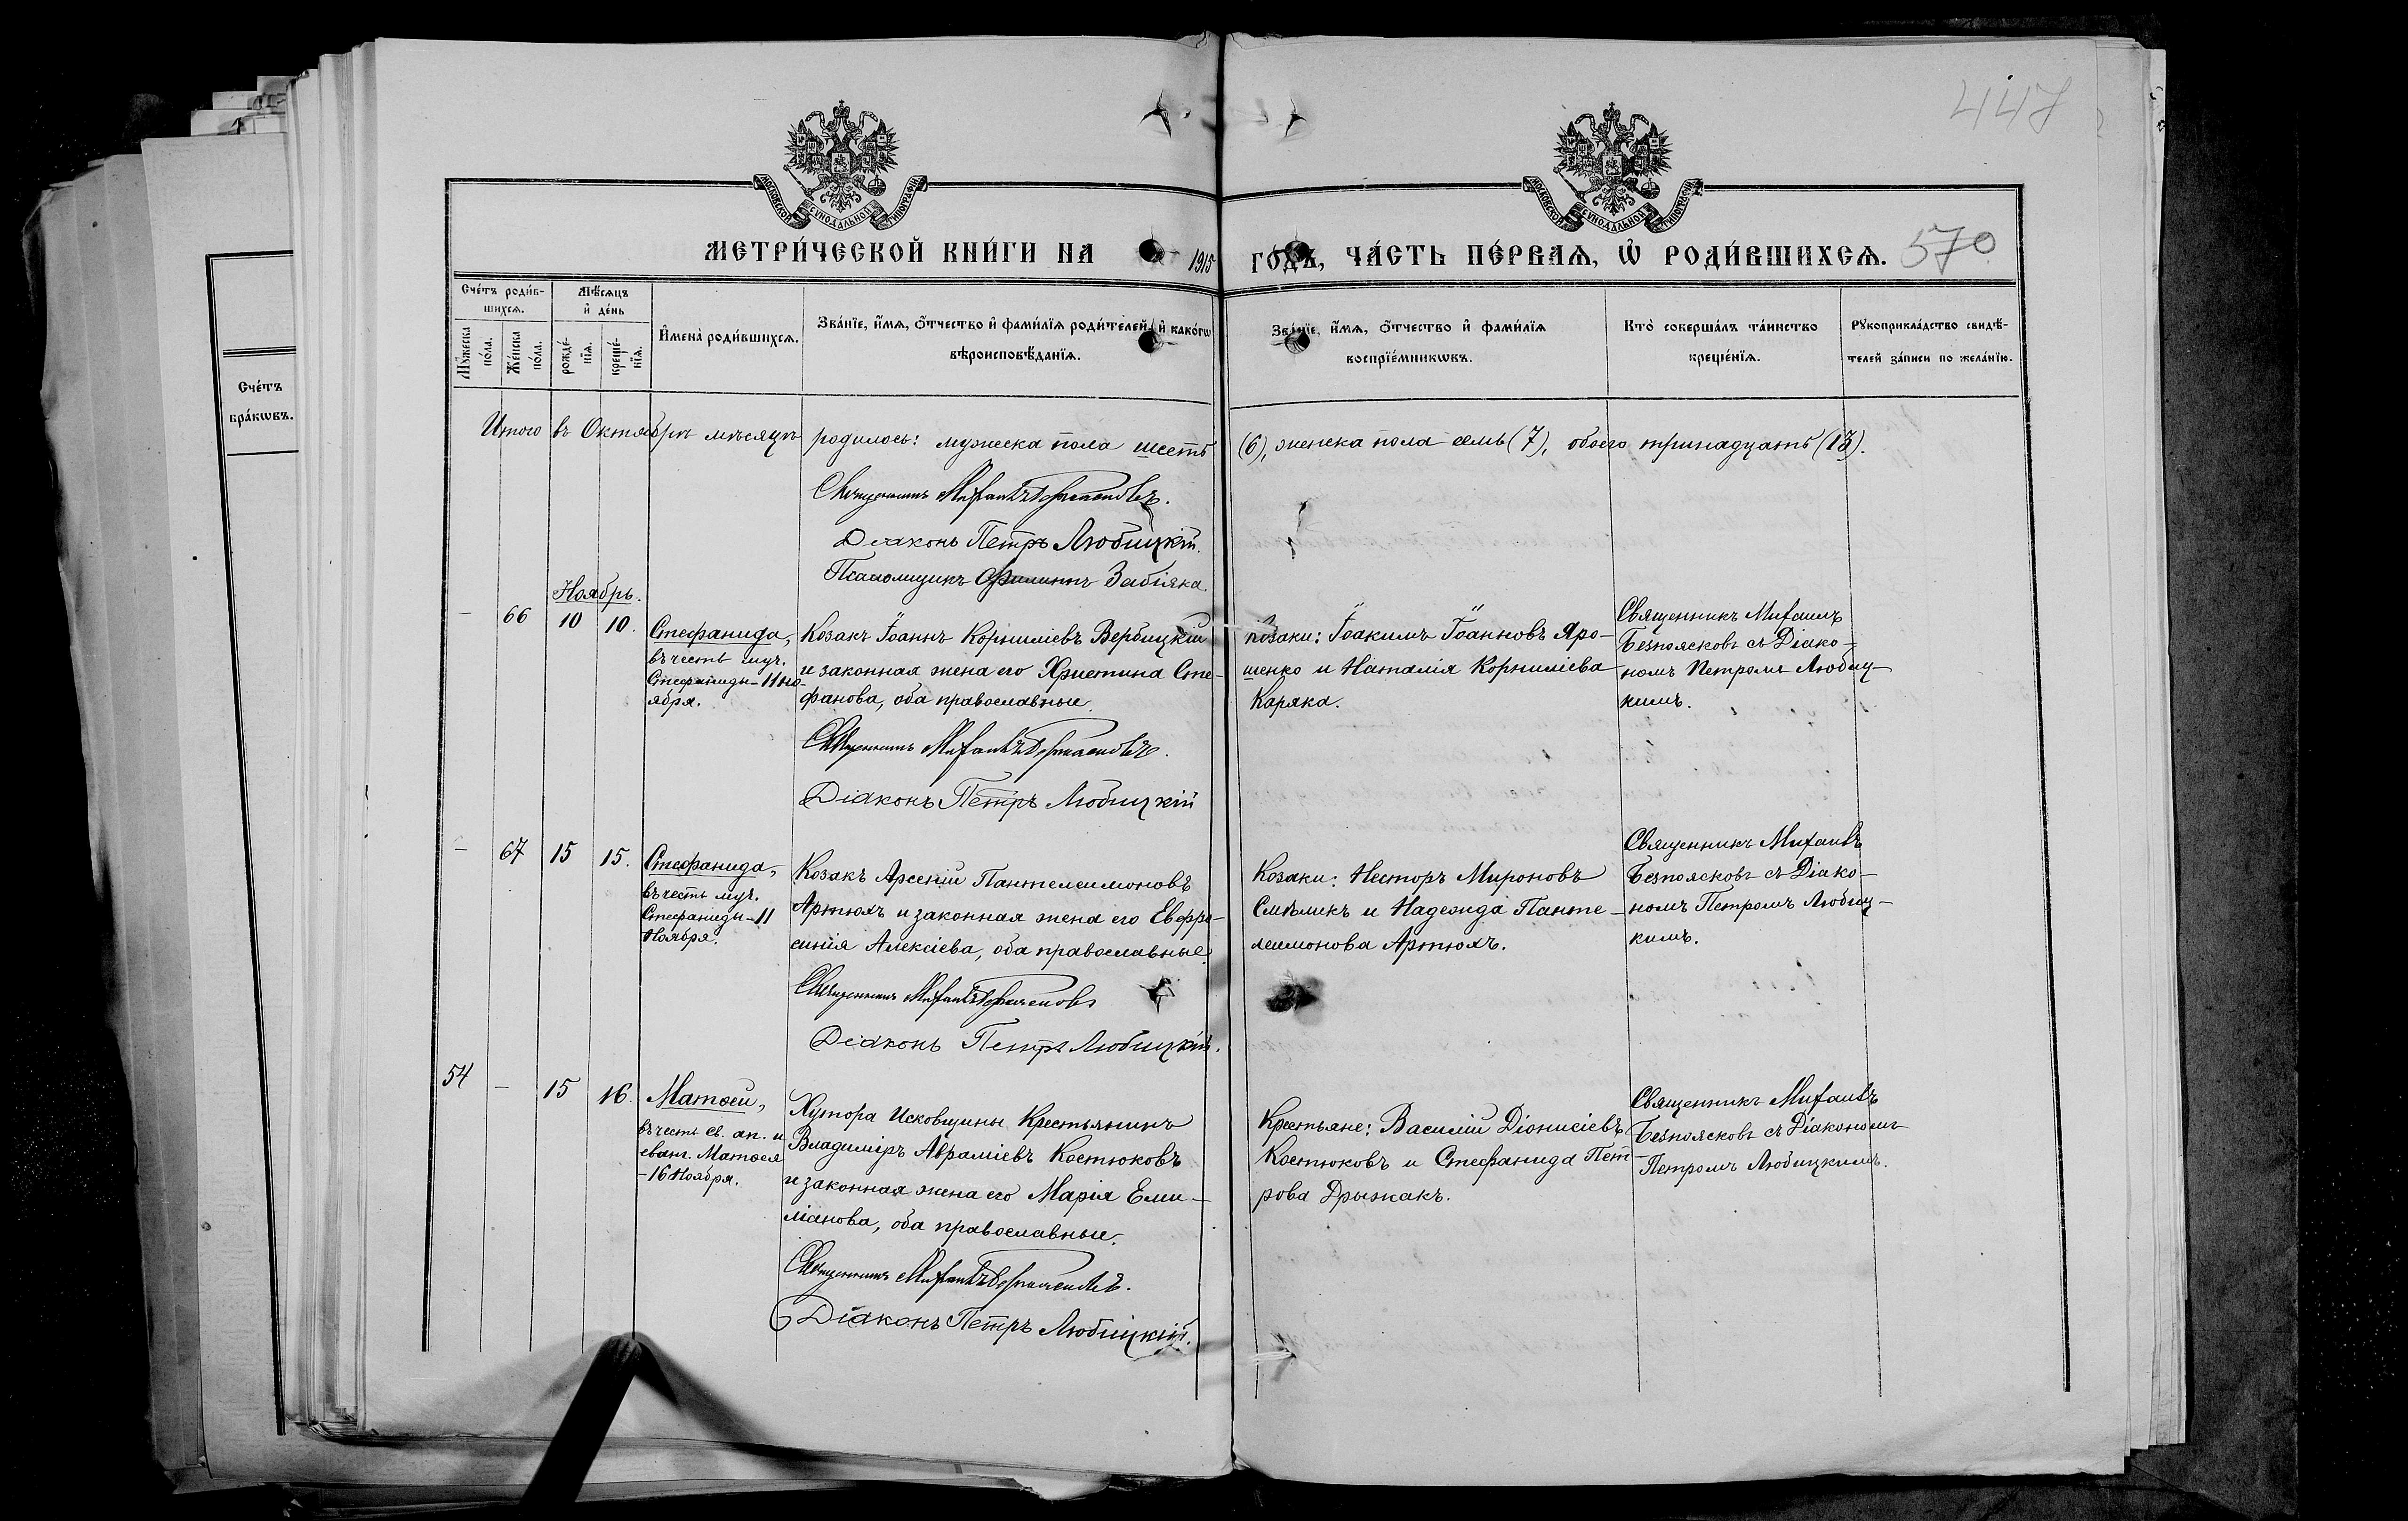 447
МОСКОВСКОЙ СѴНОДАЛЬНОЙ ТИПОГРАФІИ
МОСКОВСКОЙ СѴНОДАЛЬНОЙ ТИПОГРАФІИ
МЕТРИ́ЧЕСКОЙ КНИ́ГИ НА 1915 ГО́ДЪ, ЧА́СТЬ ПЕ́РВАѦ, Ѽ РОДИ́ВШИХСѦ. 570
Сче́тъ роди́в-
шихсѧ.
Мꙋ́жеска по́ла.
Же́нска по́ла.
Мѣ́сѧцъ и҆ де́нь
рожде́-
нїѧ.
креще́-
нїѧ.
И҆мена̀ роди́вшихсѧ.
Зва́нїе, и҆́мѧ, ѻ҆́тчество и҆ фами́лїѧ роди́телей, и҆ како́гѡ
вѣроисповѣ́данїѧ.
Зва́нїе, и҆́мѧ, ѻ҆́тчество и҆ фами́лїѧ
воспрїе́мникѡвъ.
Кто̀ соверша́лъ та́инство
креще́нїѧ.
Рꙋкоприкла́дство свидѣ́-
телей за́писи по жела́нїю.
Сче́тъ
бра́кѡвъ.
Итого въ Октябрѣ мѣсяцѣ родилось: мужеска пола шесть (6), женска пола семь (7), обоего тринадцать (13).
Священникъ Михаилъ Безпоясковъ.
Діаконъ Петръ Любицкій.
Псаломщикъ Филиппъ Забіяка.
Ноябрь.
— 66 10 10.
Стефанида,
въ честь муч.
Стефаниды – 11 но-
ября.
Козакъ Іоаннъ Корниліевъ Вербицкій
и законная жена его Христина Сте-
фанова, оба православные.
Священникъ Михаилъ Безпоясковъ.
Діаконъ Петръ Любицкій
Козаки: Іоакимъ Іоанновъ Яро-
шенко и Наталія Корниліева
Каряка.
Священникъ Михаилъ
Безпоясковъ съ Діако-
номъ Петромъ Любиц-
кимъ.
— 67 15 15.
Стефанида,
въ честь муч.
Стефаниды – 11
Ноября.
Козакъ Арсеній Пантелеимоновъ
Артюхъ и законная жена его Евфро-
синія Алексіева, оба православные.
Священникъ Михаилъ Безпоясковъ
Діаконъ Петръ Любицкій.
Козаки: Несторъ Мироновъ
Смѣликъ и Надежда Панте-
леимонова Артюхъ.
Священникъ Михаилъ
Безпоясковъ съ Діако-
номъ Петромъ Любиц-
кимъ.
54 — 15 16.
Матѳей,
въ честь св. ап. и
еванг. Матѳея
– 16 Ноября.
Хутора Исковщины Крестьянинъ
Владиміръ Авраміевъ Костюковъ
и законная жена его Марія Еми-
ліанова, оба православные.
Священникъ Михаилъ Безпоясковъ.
Діаконъ Петръ Любицкій.
Крестьяне: Василій Діонисіевъ
Костюковъ и Стефанида Пет-
рова Дрыжакъ.
Священникъ Михаилъ
Безпоясковъ съ Діакономъ
Петромъ Любицкимъ.